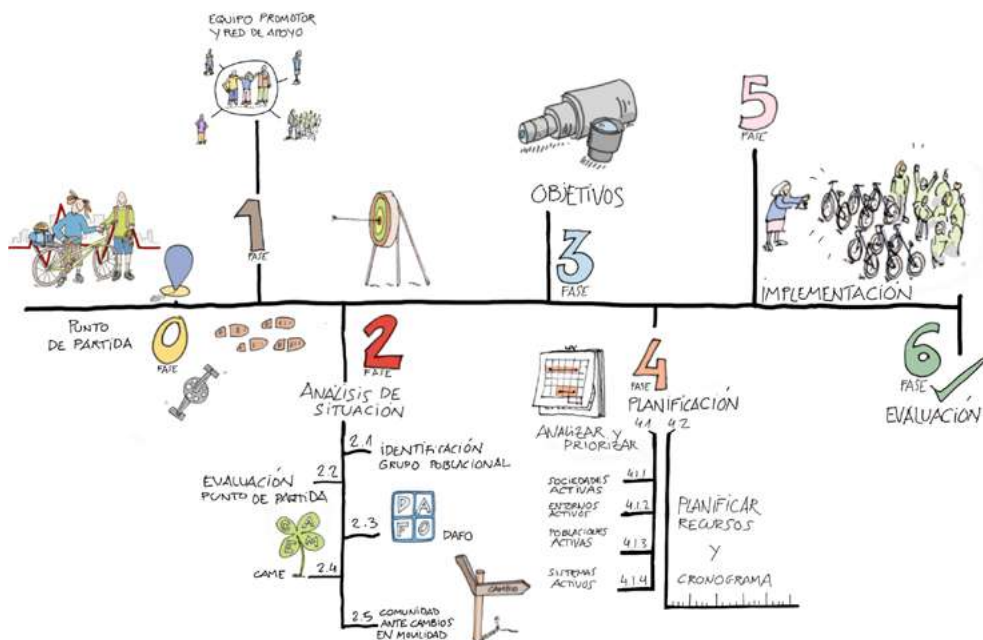 EQUIPO PROMOTOR
Y RED DE APOYO
1
FASE
PUNTO
DE PARTIDA
0
FASE
2
FASE
ANÁLISIS DE
SITUACIÓN
2.1
IDENTIFICACIÓN
GRUPO POBLACIONAL
2.2
EVALUACIÓN
PUNTO DE PARTIDA
2.3
D A
F O
DAFO
C A
E M
2.4
CAME
2.5
COMUNIDAD
ANTE CAMBIOS
EN MOVILIDAD
CAMBIO
OBJETIVOS
3
FASE
4
FASE
PLANIFICACIÓN
4.1 4.2
ANALIZAR Y
PRIORIZAR
SOCIEDADES
ACTIVAS
4.1.1
ENTORNOS
ACTIVOS
4.1.2
POBLACIONES
ACTIVAS
4.1.3
SISTEMAS
ACTIVOS
4.1.4
PLANIFICAR
RECURSOS
Y
CRONOGRAMA
5
FASE
IMPLEMENTACIÓN
6
FASE
EVALUACIÓN